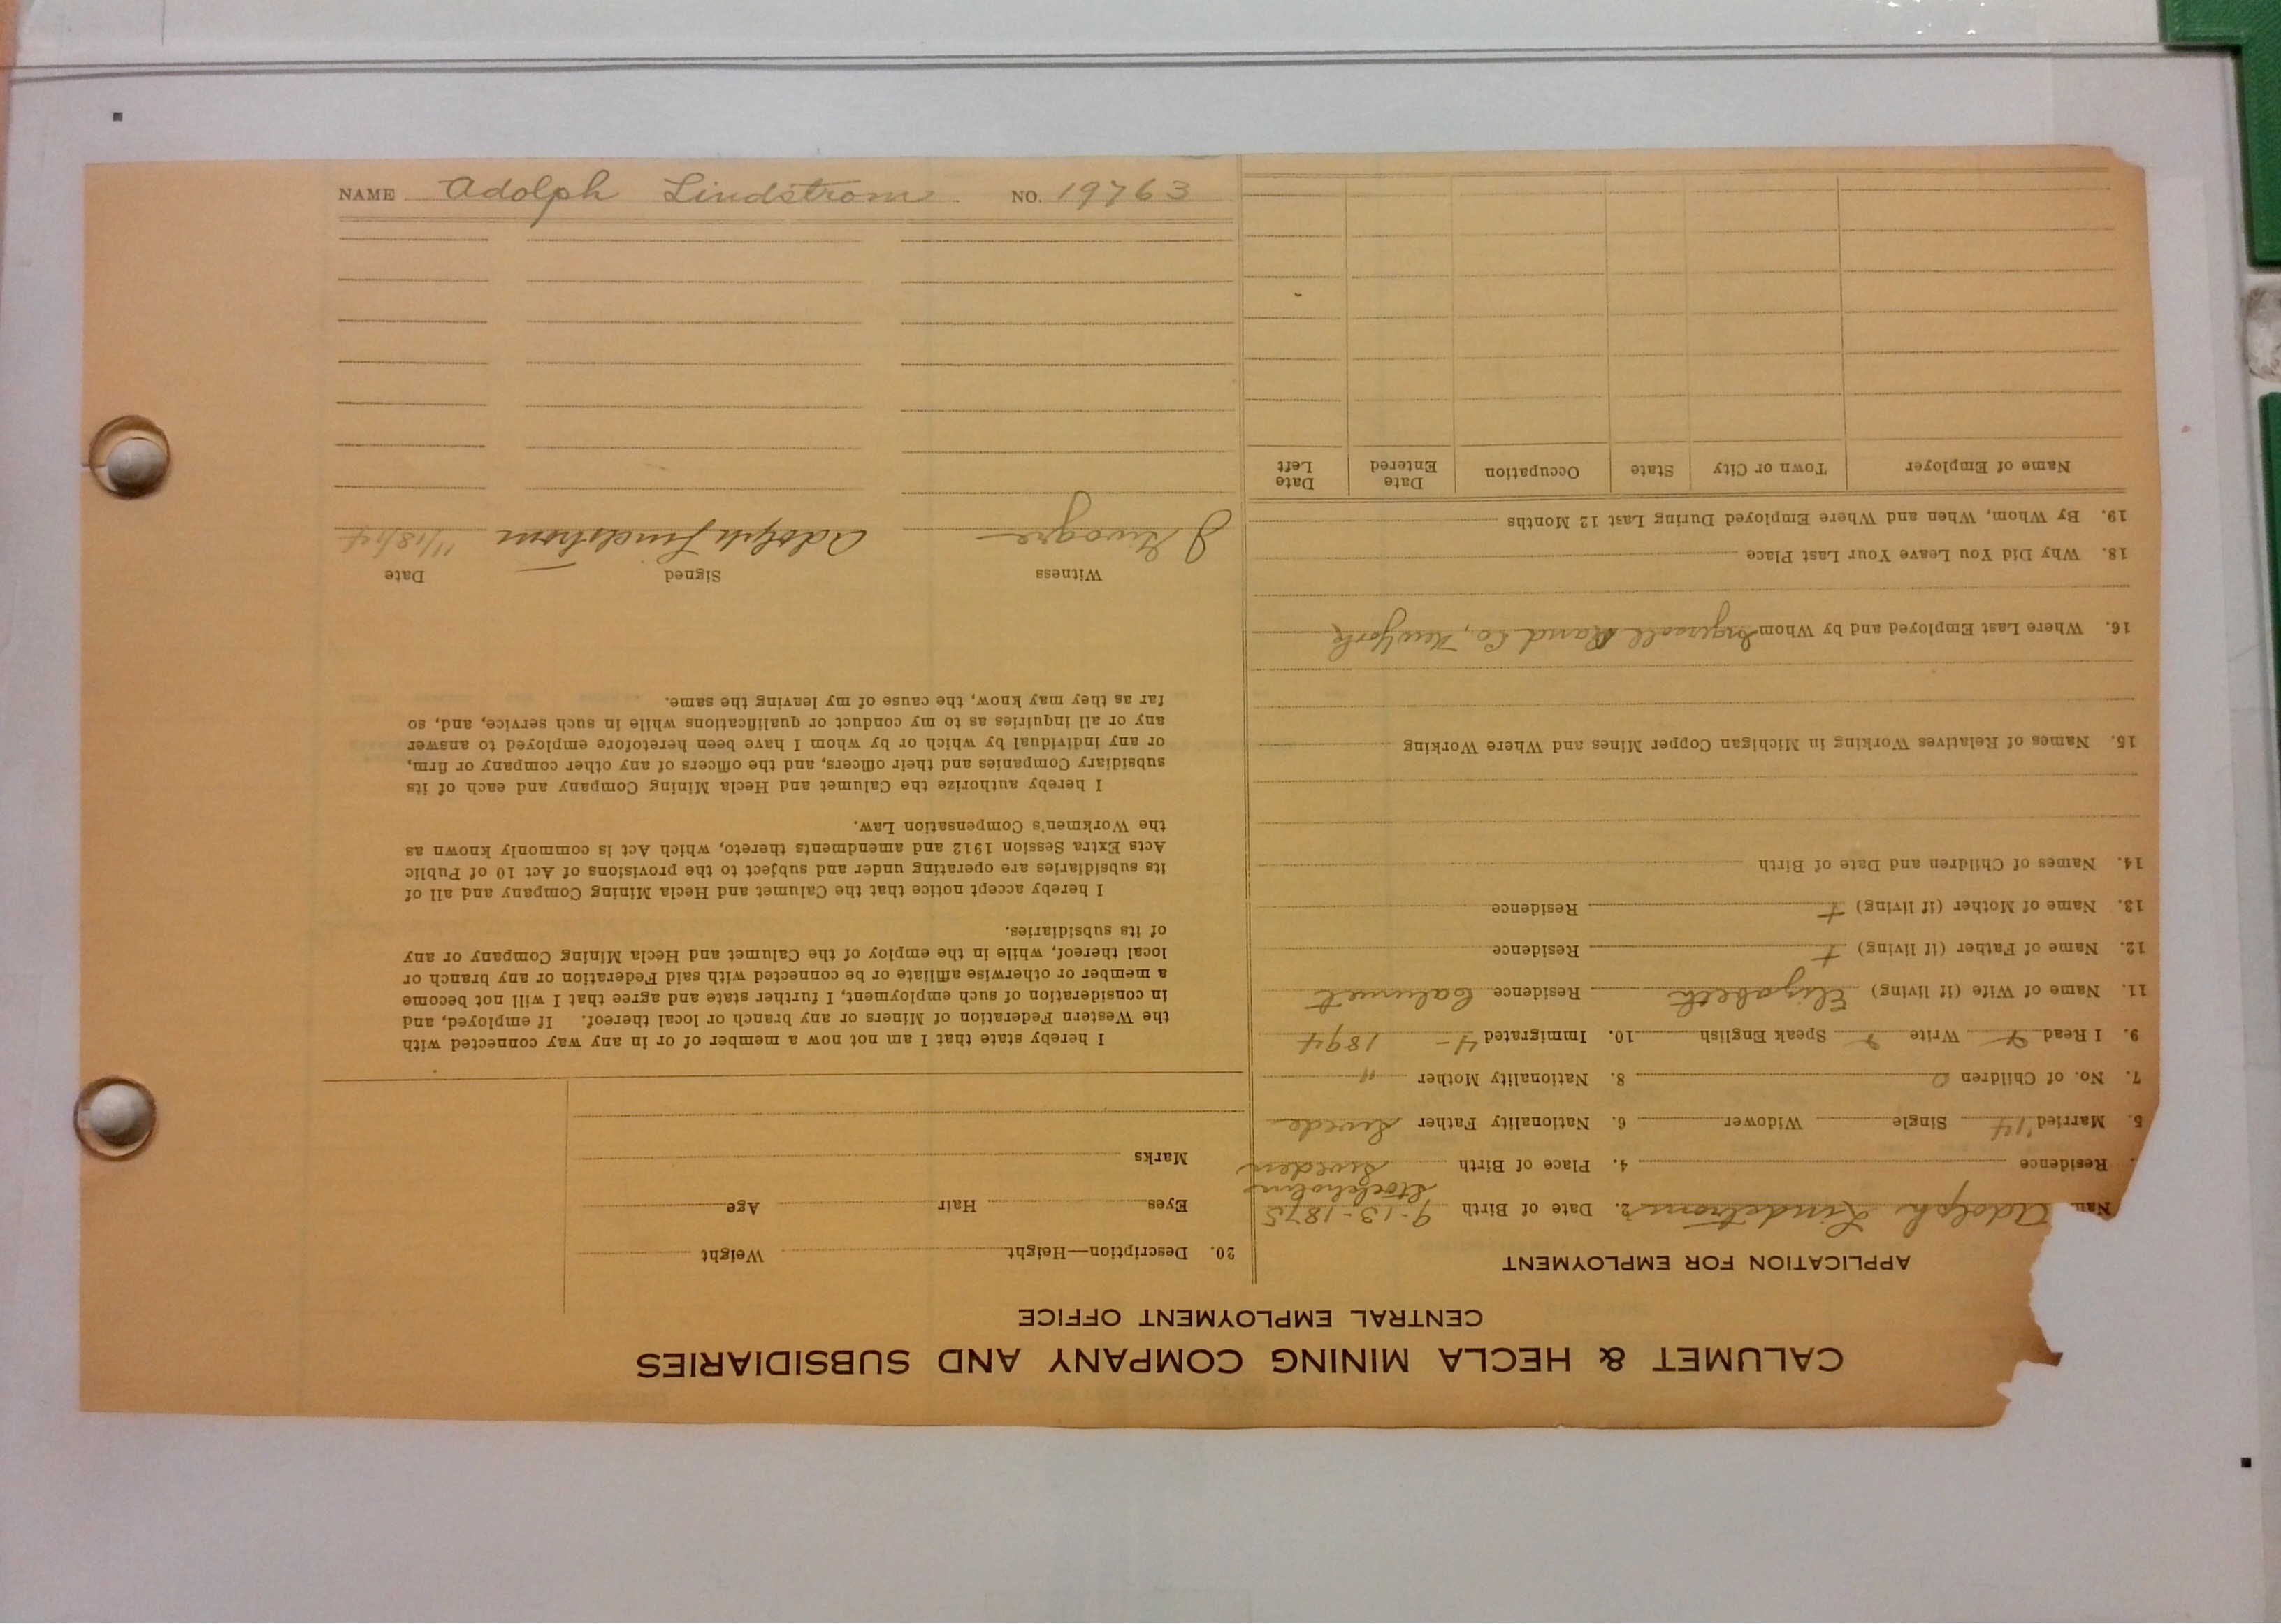 CALUMET & HECLA MINING COMPANY AND SUBSIDIARIES
CENTRAL EMPLOYMENT OFFICE
APPLICATION FOR EMPLOYMENT
Adolph Lindstrom 2. Date of Birth 9-13-1875
Residence 4. Place of Birth Stockholm Sweden
5. Married '14 Single Widower 6. Nationality Father Swede
7. No. of Children 0 8. Nationality Mother "
9. I Read Write Speak English 10. Immigrated 4- 1894
11. Name of Wife (if living) Elizabeth Residence Calumet
12. Name of Father (if living) † Residence
13. Name of Mother (if living) † Residence
14. Names of Children and Date of Birth
15. Names of Relatives Working in Michigan Copper Mines and Where Working
16. Where Last Employed and by Whom Ingersoll Rand Co, New York
18. Why Did You Leave Your Last Place
19. By Whom, When and Where Employed During Last 12 Months
Name of Employer Town or City State Occupation Date Entered Date Left
20. Description—Height Weight
Eyes Hair Age
Marks
I hereby state that I am not now a member of or in any way connected with
the Western Federation of Miners or any branch or local thereof. If employed, and
in consideration of such employment, I further state and agree that I will not become
a member or otherwise affiliate or be connected with said Federation or any branch or
local thereof, while in the employ of the Calumet and Hecla Mining Company or any
of its subsidiaries.
I hereby accept notice that the Calumet and Hecla Mining Company and all of
its subsidiaries are operating under and subject to the provisions of Act 10 of Public
Acts Extra Session 1912 and amendments thereto, which Act is commonly known as
the Workmen's Compensation Law.
I hereby authorize the Calumet and Hecla Mining Company and each of its
subsidiary Companies and their officers, and the officers of any other company or firm,
or any individual by which or by whom I have been heretofore employed to answer
any or all inquiries as to my conduct or qualifications while in such service, and, so
far as they may know, the cause of my leaving the same.
Witness Signed Date
Adolph Lindstrom 11/18/14
NAME Adolph Lindstrom NO. 19763